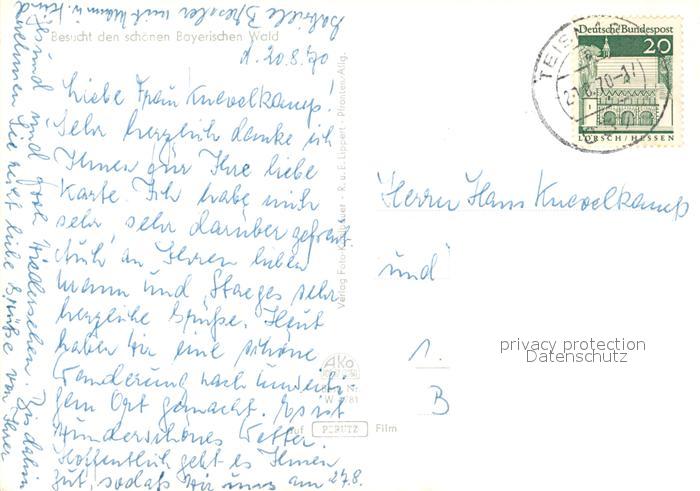 Besucht den schönen Bayerischen Wald
d. 20.8.70
Liebe Frau Knevelkamp!
Sehr herzlich danke ich
Ihnen für Ihre liebe
Karte. Ich habe mich
sehr, sehr darüber gefreut.
Auch an Ihren lieben
Mann und Staeges sehr
herzliche Grüße. Heut
haben wir eine schöne
Wanderung nach
gem Ort gemacht. Es ist
wunderschönes Wetter.
Hoffentlich geht es Ihnen
gut, sodaß wir uns am 27.8.
gesund und froh wiedersehen. Bis dahin
nehmen Sie recht liebe Grüße von Ihrer
Gabriele mit Mann u. Kind
Verlag Foto- R. u. E. Lippert - Pfronten/Allg.
AKO
W 781
auf PERUTZ Film
TEISNACH
21.8.70-17
Deutsche Bundespost
20
LORSCH/HESSEN
Herrn Hans Knevelkamp
und
1.
B
privacy protection
Datenschutz